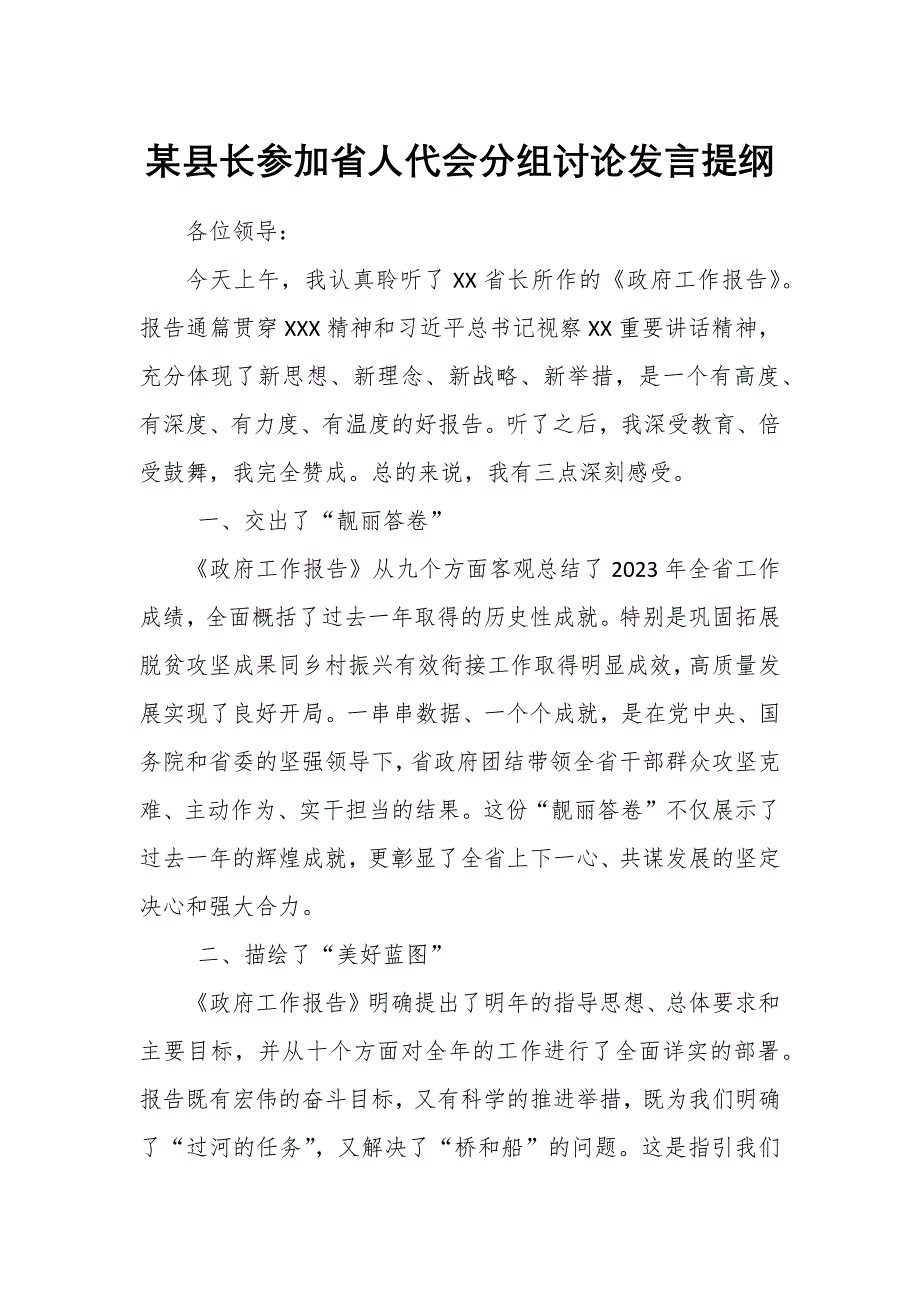 某县长参加省人代会分组讨论发言提纲
各位领导：
今天上午，我认真聆听了 XX 省长所作的《政府工作报告》。
报告通篇贯穿 XXX 精神和习近平总书记视察 XX 重要讲话精神，
充分体现了新思想、新理念、新战略、新举措，是一个有高度、
有深度、有力度、有温度的好报告。听了之后，我深受教育、倍
受鼓舞，我完全赞成。总的来说，我有三点深刻感受。
一、交出了“靓丽答卷”
《政府工作报告》从九个方面客观总结了 2023 年全省工作
成绩，全面概括了过去一年取得的历史性成就。特别是巩固拓展
脱贫攻坚成果同乡村振兴有效衔接工作取得明显成效，高质量发
展实现了良好开局。一串串数据、一个个成就，是在党中央、国
务院和省委的坚强领导下，省政府团结带领全省干部群众攻坚克
难、主动作为、实干担当的结果。这份“靓丽答卷”不仅展示了
过去一年的辉煌成就，更彰显了全省上下一心、共谋发展的坚定
决心和强大合力。
二、描绘了“美好蓝图”
《政府工作报告》明确提出了明年的指导思想、总体要求和
主要目标，并从十个方面对全年的工作进行了全面详实的部署。
报告既有宏伟的奋斗目标，又有科学的推进举措，既为我们明确
了“过河的任务”，又解决了“桥和船”的问题。这是指引我们